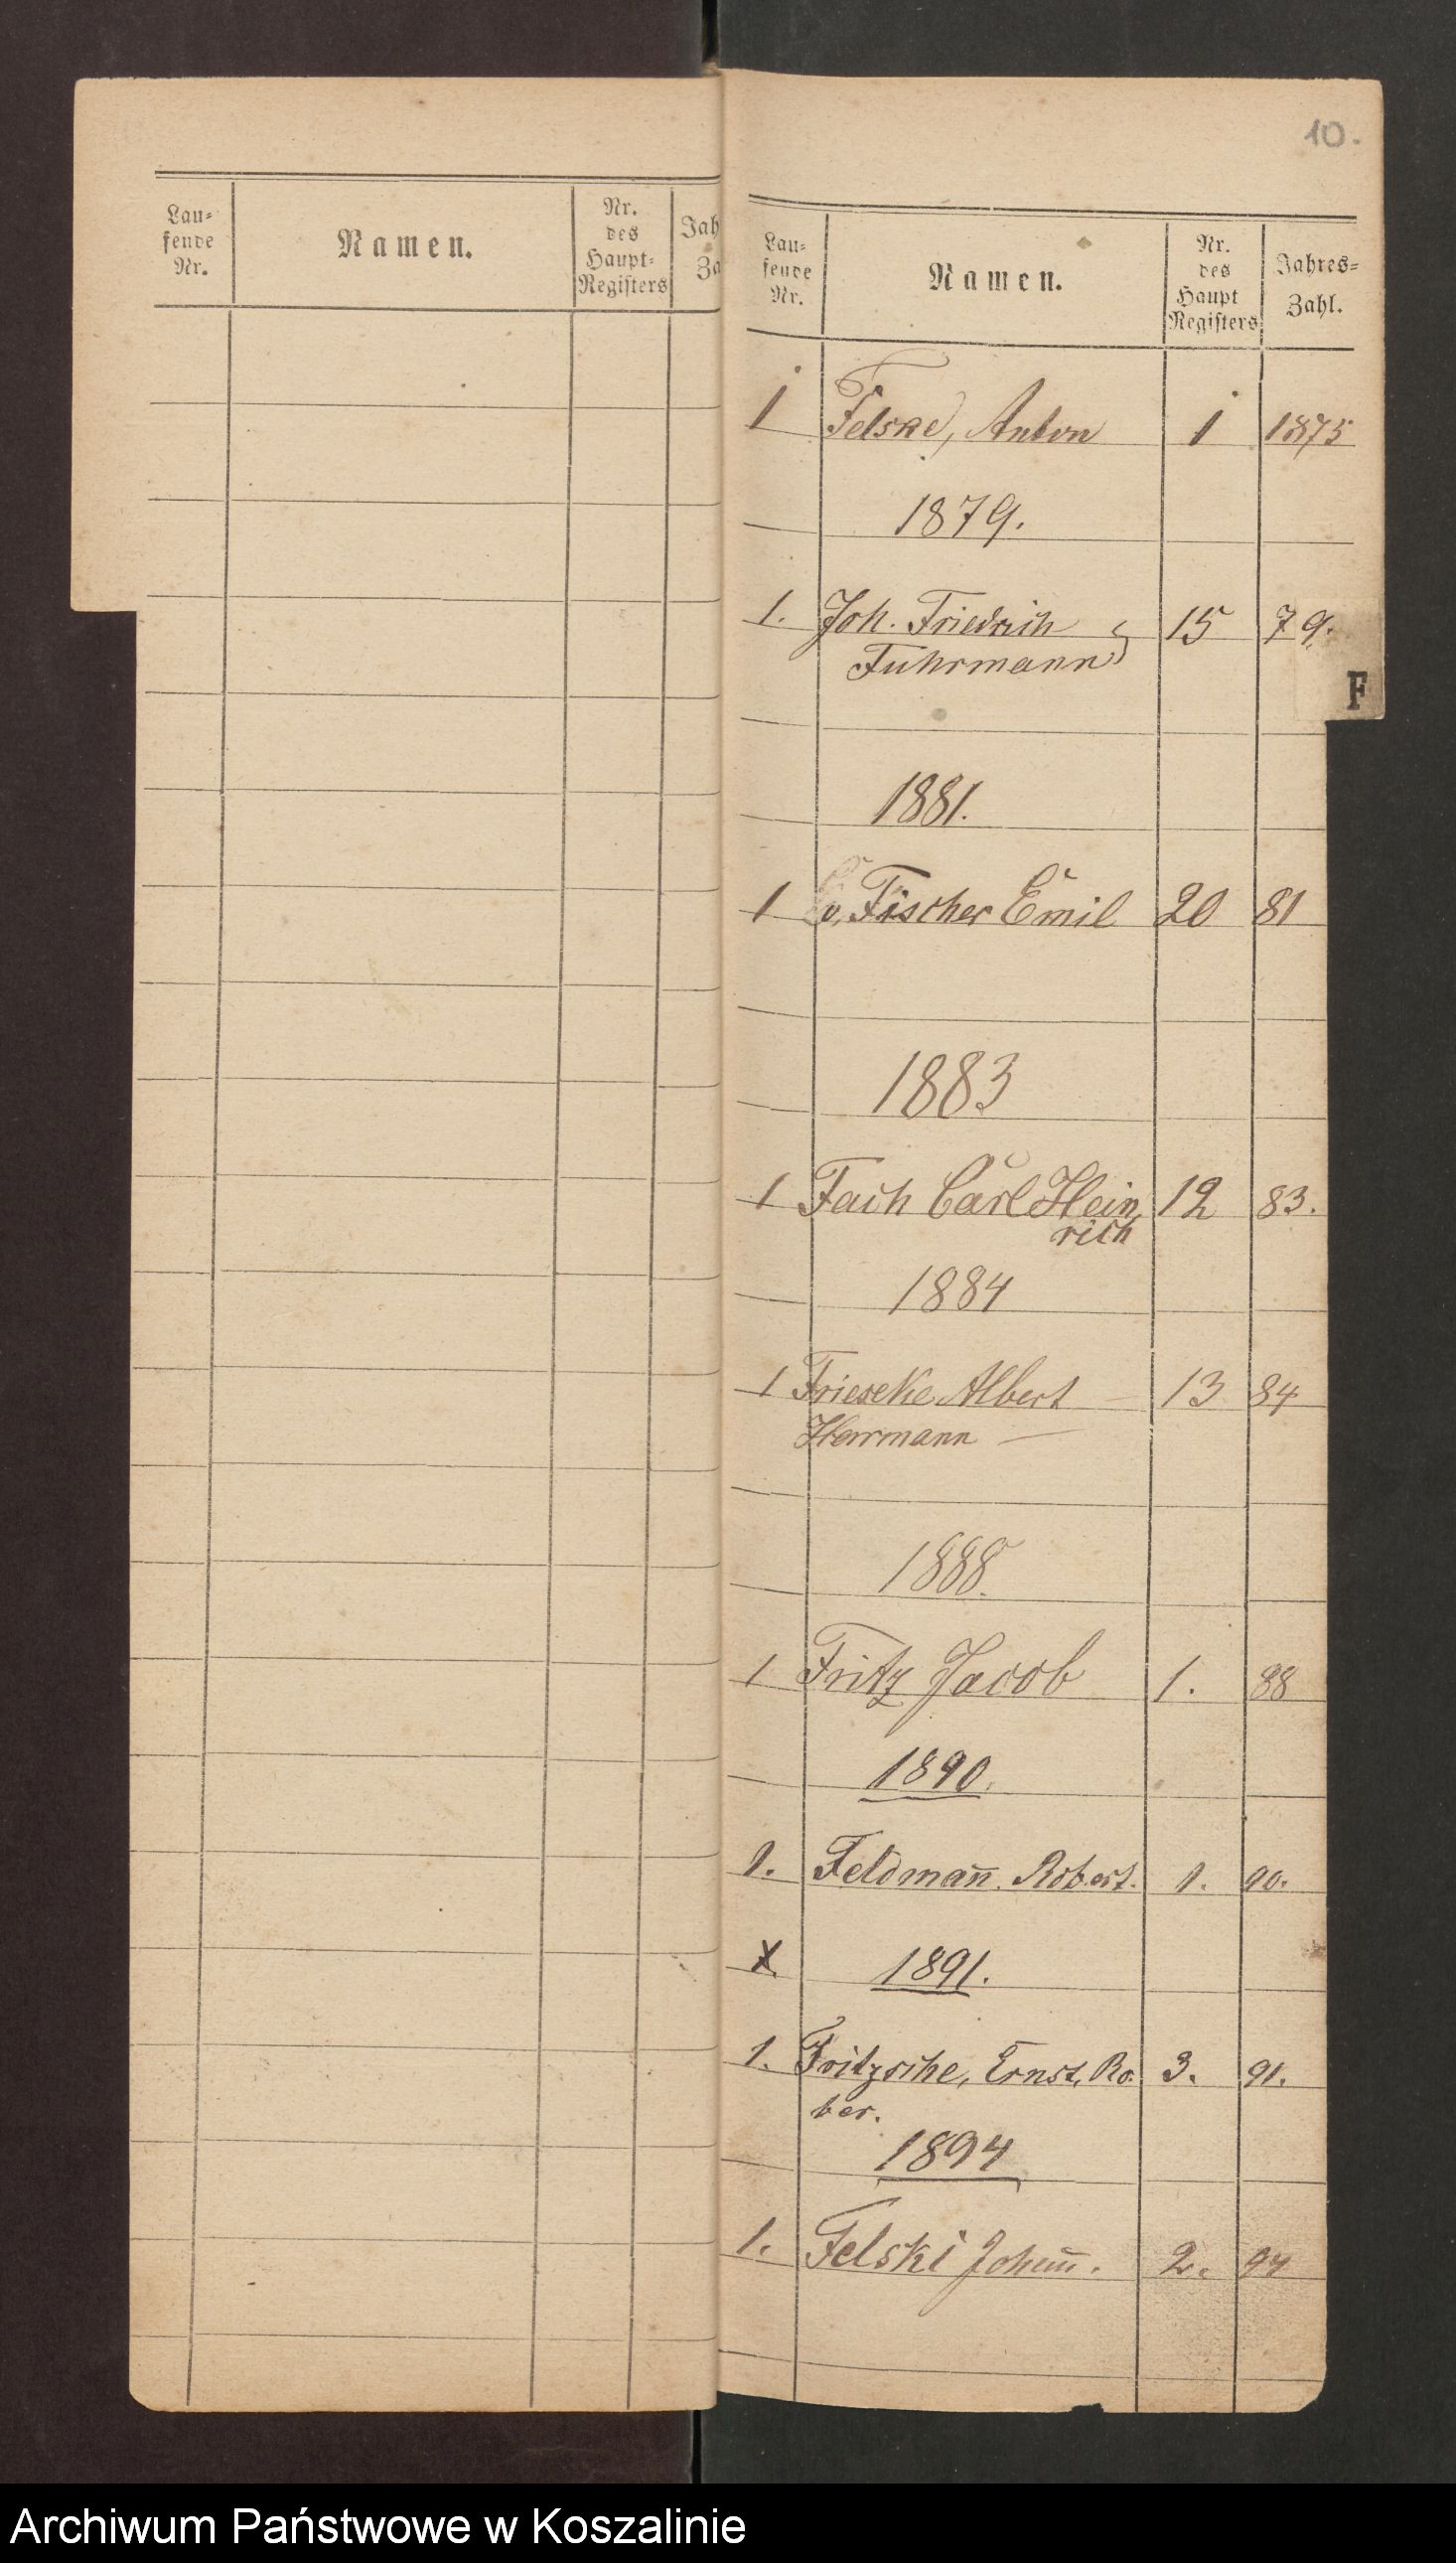 10.
Lau=
fende
Nr.
Namen.
Nr.
des
Haupt=
Registers
Jah
Za
Lau=
fende
Nr.
Namen.
Nr.
des
Haupt
Registers
Jahres=
Zahl.
1 Felske, Anton 1 1875
1879.
1. Joh. Friedrich 15 79.
Fuhrmann
F
1881.
1 Fischer Emil 20 81
1883
1 Fach Carl Hein 12 83.
rich
1884
1 Frieseke Albert — 13 84
Herrmann —
1888.
1 Fritz Jacob 1. 88
1890.
1. Feldmann̄. Robert. 1. 90.
X 1891.
1. Fritzsche, Ernst, Ro. 3. 91.
ber.
1894
1. Felski Johann̄. 2. 94
Archiwum Państwowe w Koszalinie